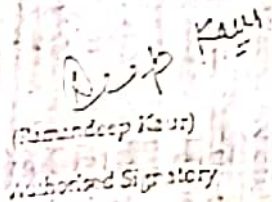 Deep Kaur
(Ramandeep Kaur)
Authorised Signatory